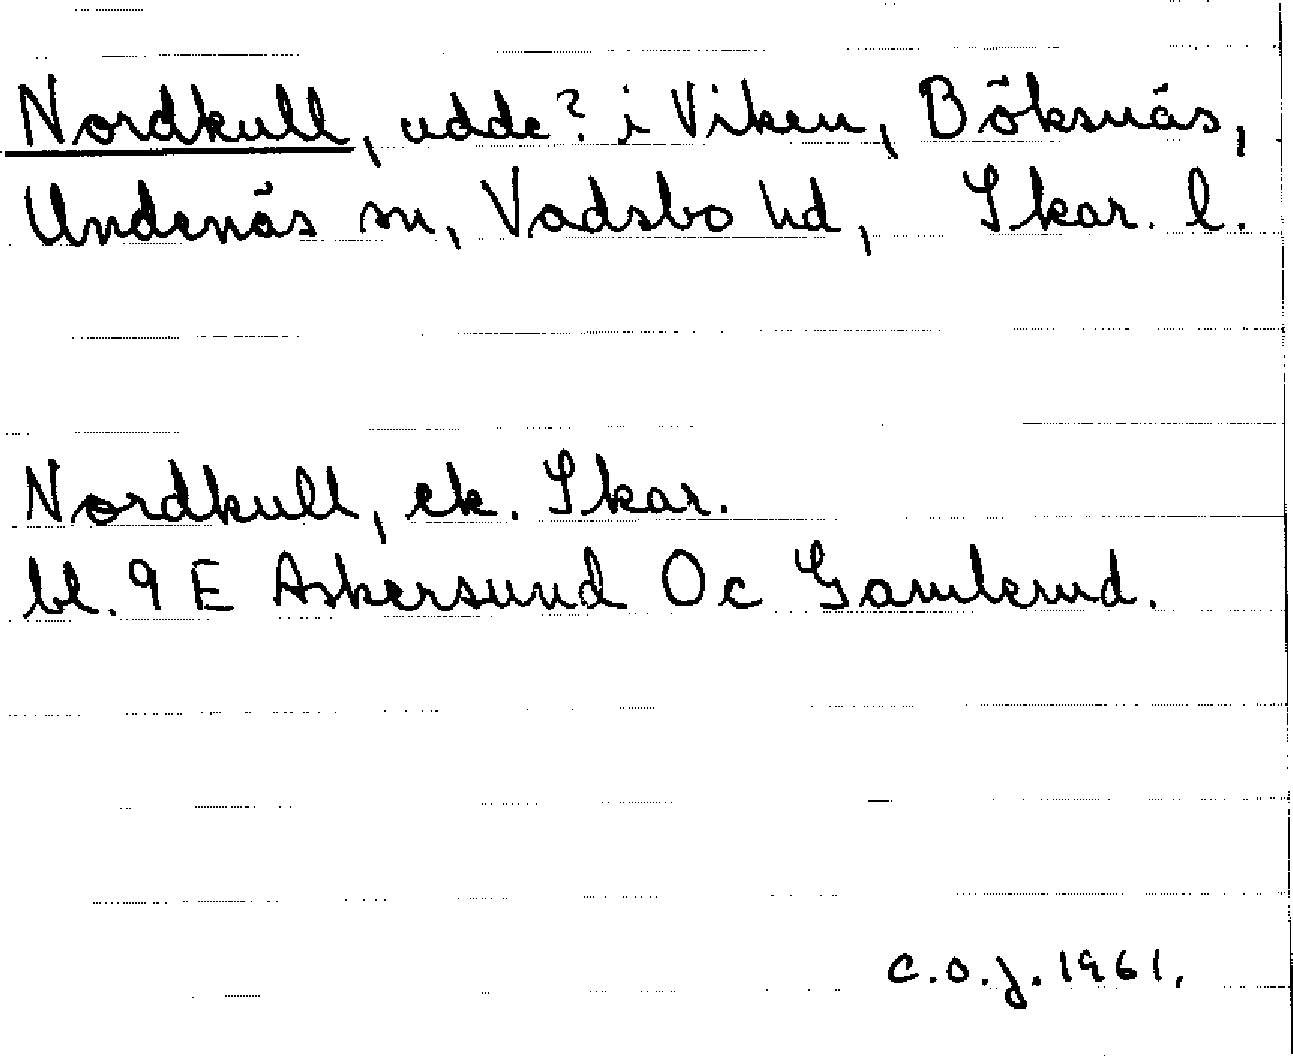 Nordkull, udde? i Viken, Böksnäs,
Undenäs sn, Vadsbo hd, Skar. l.
Nordkull, ek. Skar.
bl. 9 E Askersund Oc Gamlerud.
C.O.J. 1961.